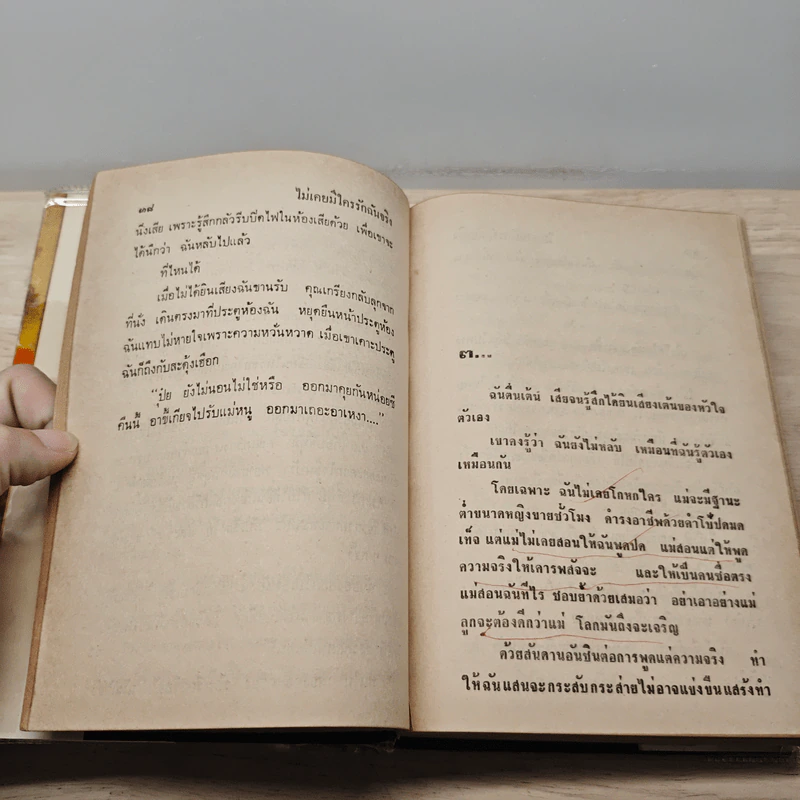 ๓๘
ไม่เคยมีใครรักฉันจริง
นึงเสีย เพราะรู้สึกกลัวรีบปิดไฟในห้องเสียด้วย เพื่อเขาจะ
ได้นึกว่า ฉันหลับไปแล้ว
ที่ไหนได้
เมื่อไม่ได้ยินเสียงฉันขานรับ คุณเกรียงกลับลุกจาก
ที่นั่ง เดินตรงมาที่ประตูห้องฉัน หยุดยืนหน้าประตูห้อง
ฉันแทบไม่หายใจเพราะความหวั่นหวาด เมื่อเขาเคาะประตู
ฉันก็ถึงกับสะดุ้งเฮือก
“ปุ้ย ยังไม่นอนไม่ใช่หรือ ออกมาคุยกันหน่อยซี
คืนนี้ อาขี้เกียจไปรับแม่หนู ออกมาเถอะอาเหงา....”
๓...
ฉันตื่นเต้น เสียจนรู้สึกได้ยินเสียงเต้นของหัวใจ
ตัวเอง
เขาคงรู้ว่า ฉันยังไม่หลับ เหมือนที่ฉันรู้ตัวเอง
เหมือนกัน
โดยเฉพาะ ฉันไม่เคยโกหกใคร แม่จะมีฐานะ
ต่ำขนาดหญิงขายชั่วโมง ดำรงอาชีพด้วยคำโป้ปดมด
เท็จ แต่แม่ไม่เคยสอนให้ฉันพูดปด แม่สอนแต่ให้พูด
ความจริงให้เคารพสัจจะ และให้เป็นคนซื่อตรง
แม่สอนฉันทีไร ชอบย้ำด้วยเสมอว่า อย่าเอาอย่างแม่
ลูกจะต้องดีกว่าแม่ โลกมันถึงจะเจริญ
ด้วยสันดานอันชินต่อการพูดแต่ความจริง ทำ
ให้ฉันแสนจะกระสับกระส่ายไม่อาจแข่งขืนแสร้งทำ